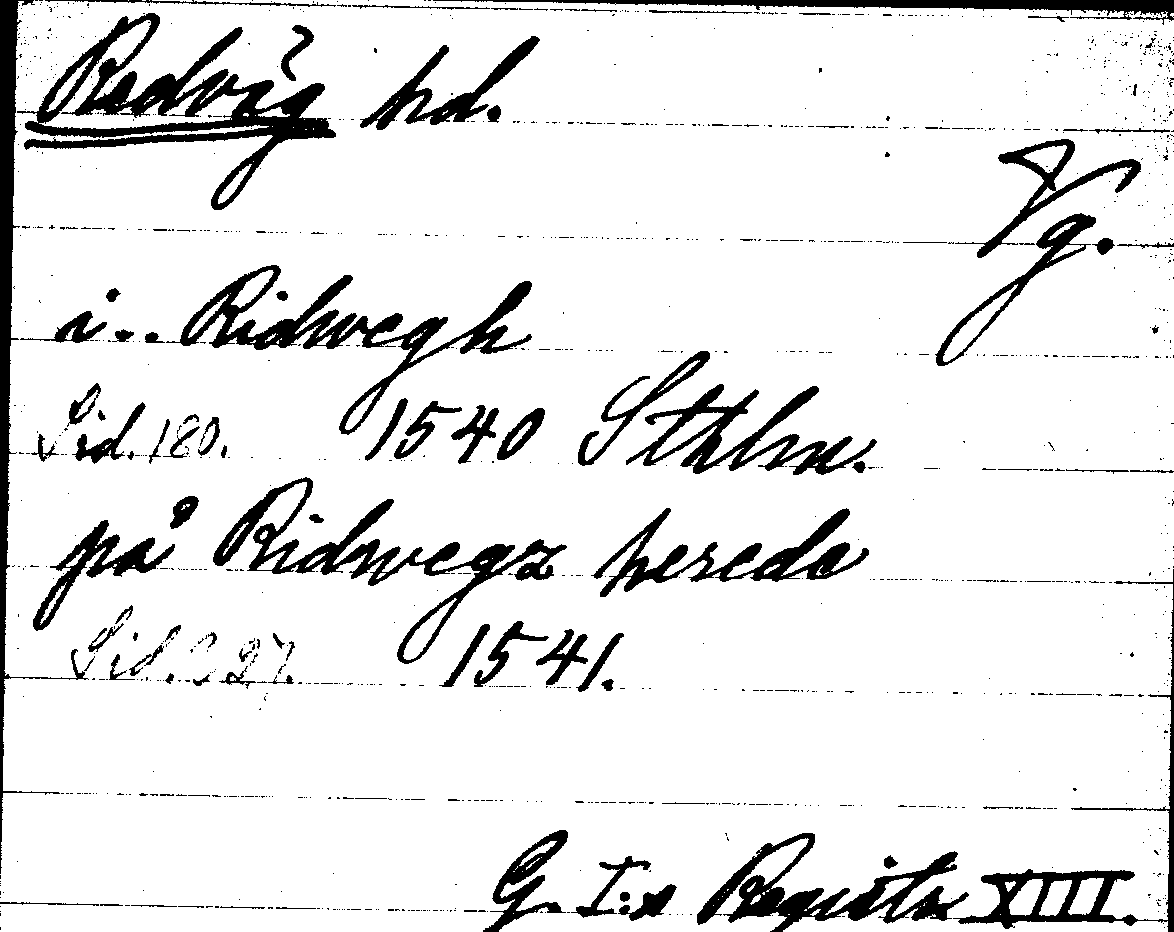 Redväg hd.
Vg.
i.. Ridwegh
Sid. 180. 1540 Sthlm.
på Ridwegz herede
Sid. 327. 1541.
G. I:s Registr. XIII.